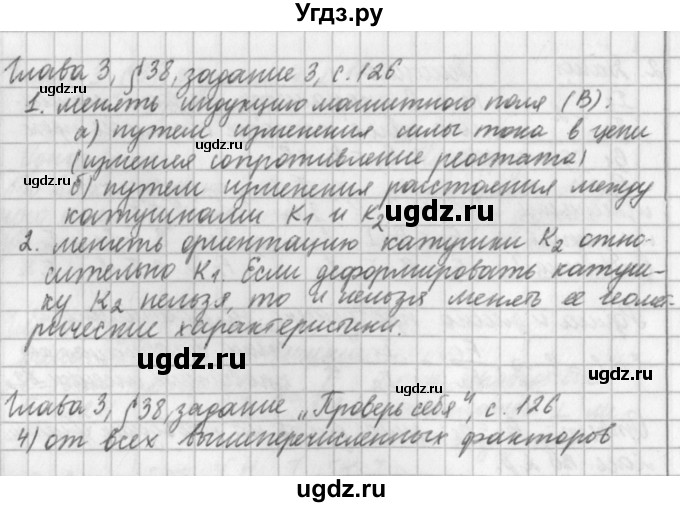 Угдз.ру
Глава 3, §38, задание 3, с. 126
1. менять индукцию магнитного поля (B):
а) путем изменения силы тока в цепи
(изменяя сопротивление реостата)
ugdz.ru
б) путем изменения расстояния между
катушками К1 и К2
ugdz.ru
ugdz.ru
2. менять ориентацию катушки К2 отно-
сительно К1. Если деформировать катуш-
ку К2 нельзя, то и нельзя менять ее геомет-
рические характеристики.
ugdz.ru
ugdz.ru
ugdz.ru
Глава 3, §38, задание „Проверь себя", с. 126
4) от всех вышеперечисленных факторов
ugdz.ru